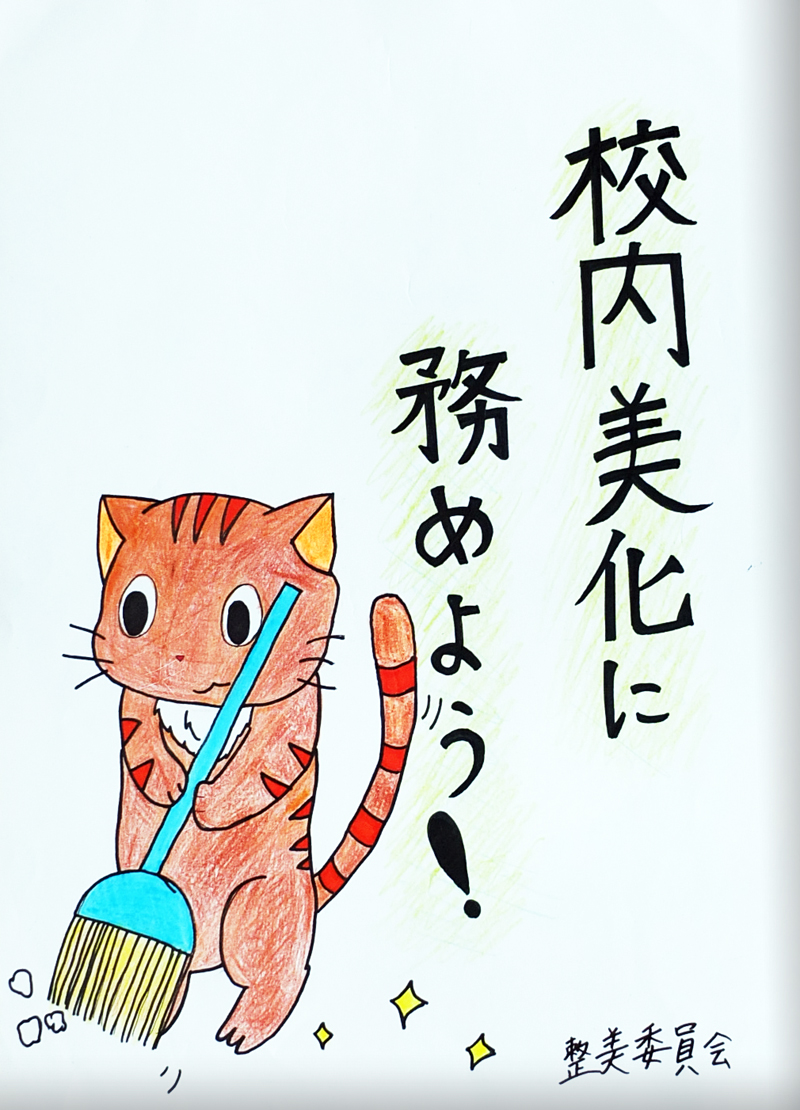 校内美化に
務めよう!
整美委員会